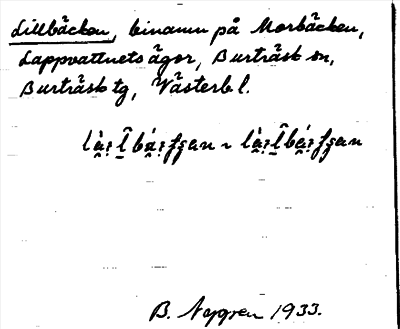 Lillbäcken, binamn på Morbäcken,
Lappvattnets ägor, Burträsk sn,
Burträsk tg, Västerb l.
B. Nygren 1933.